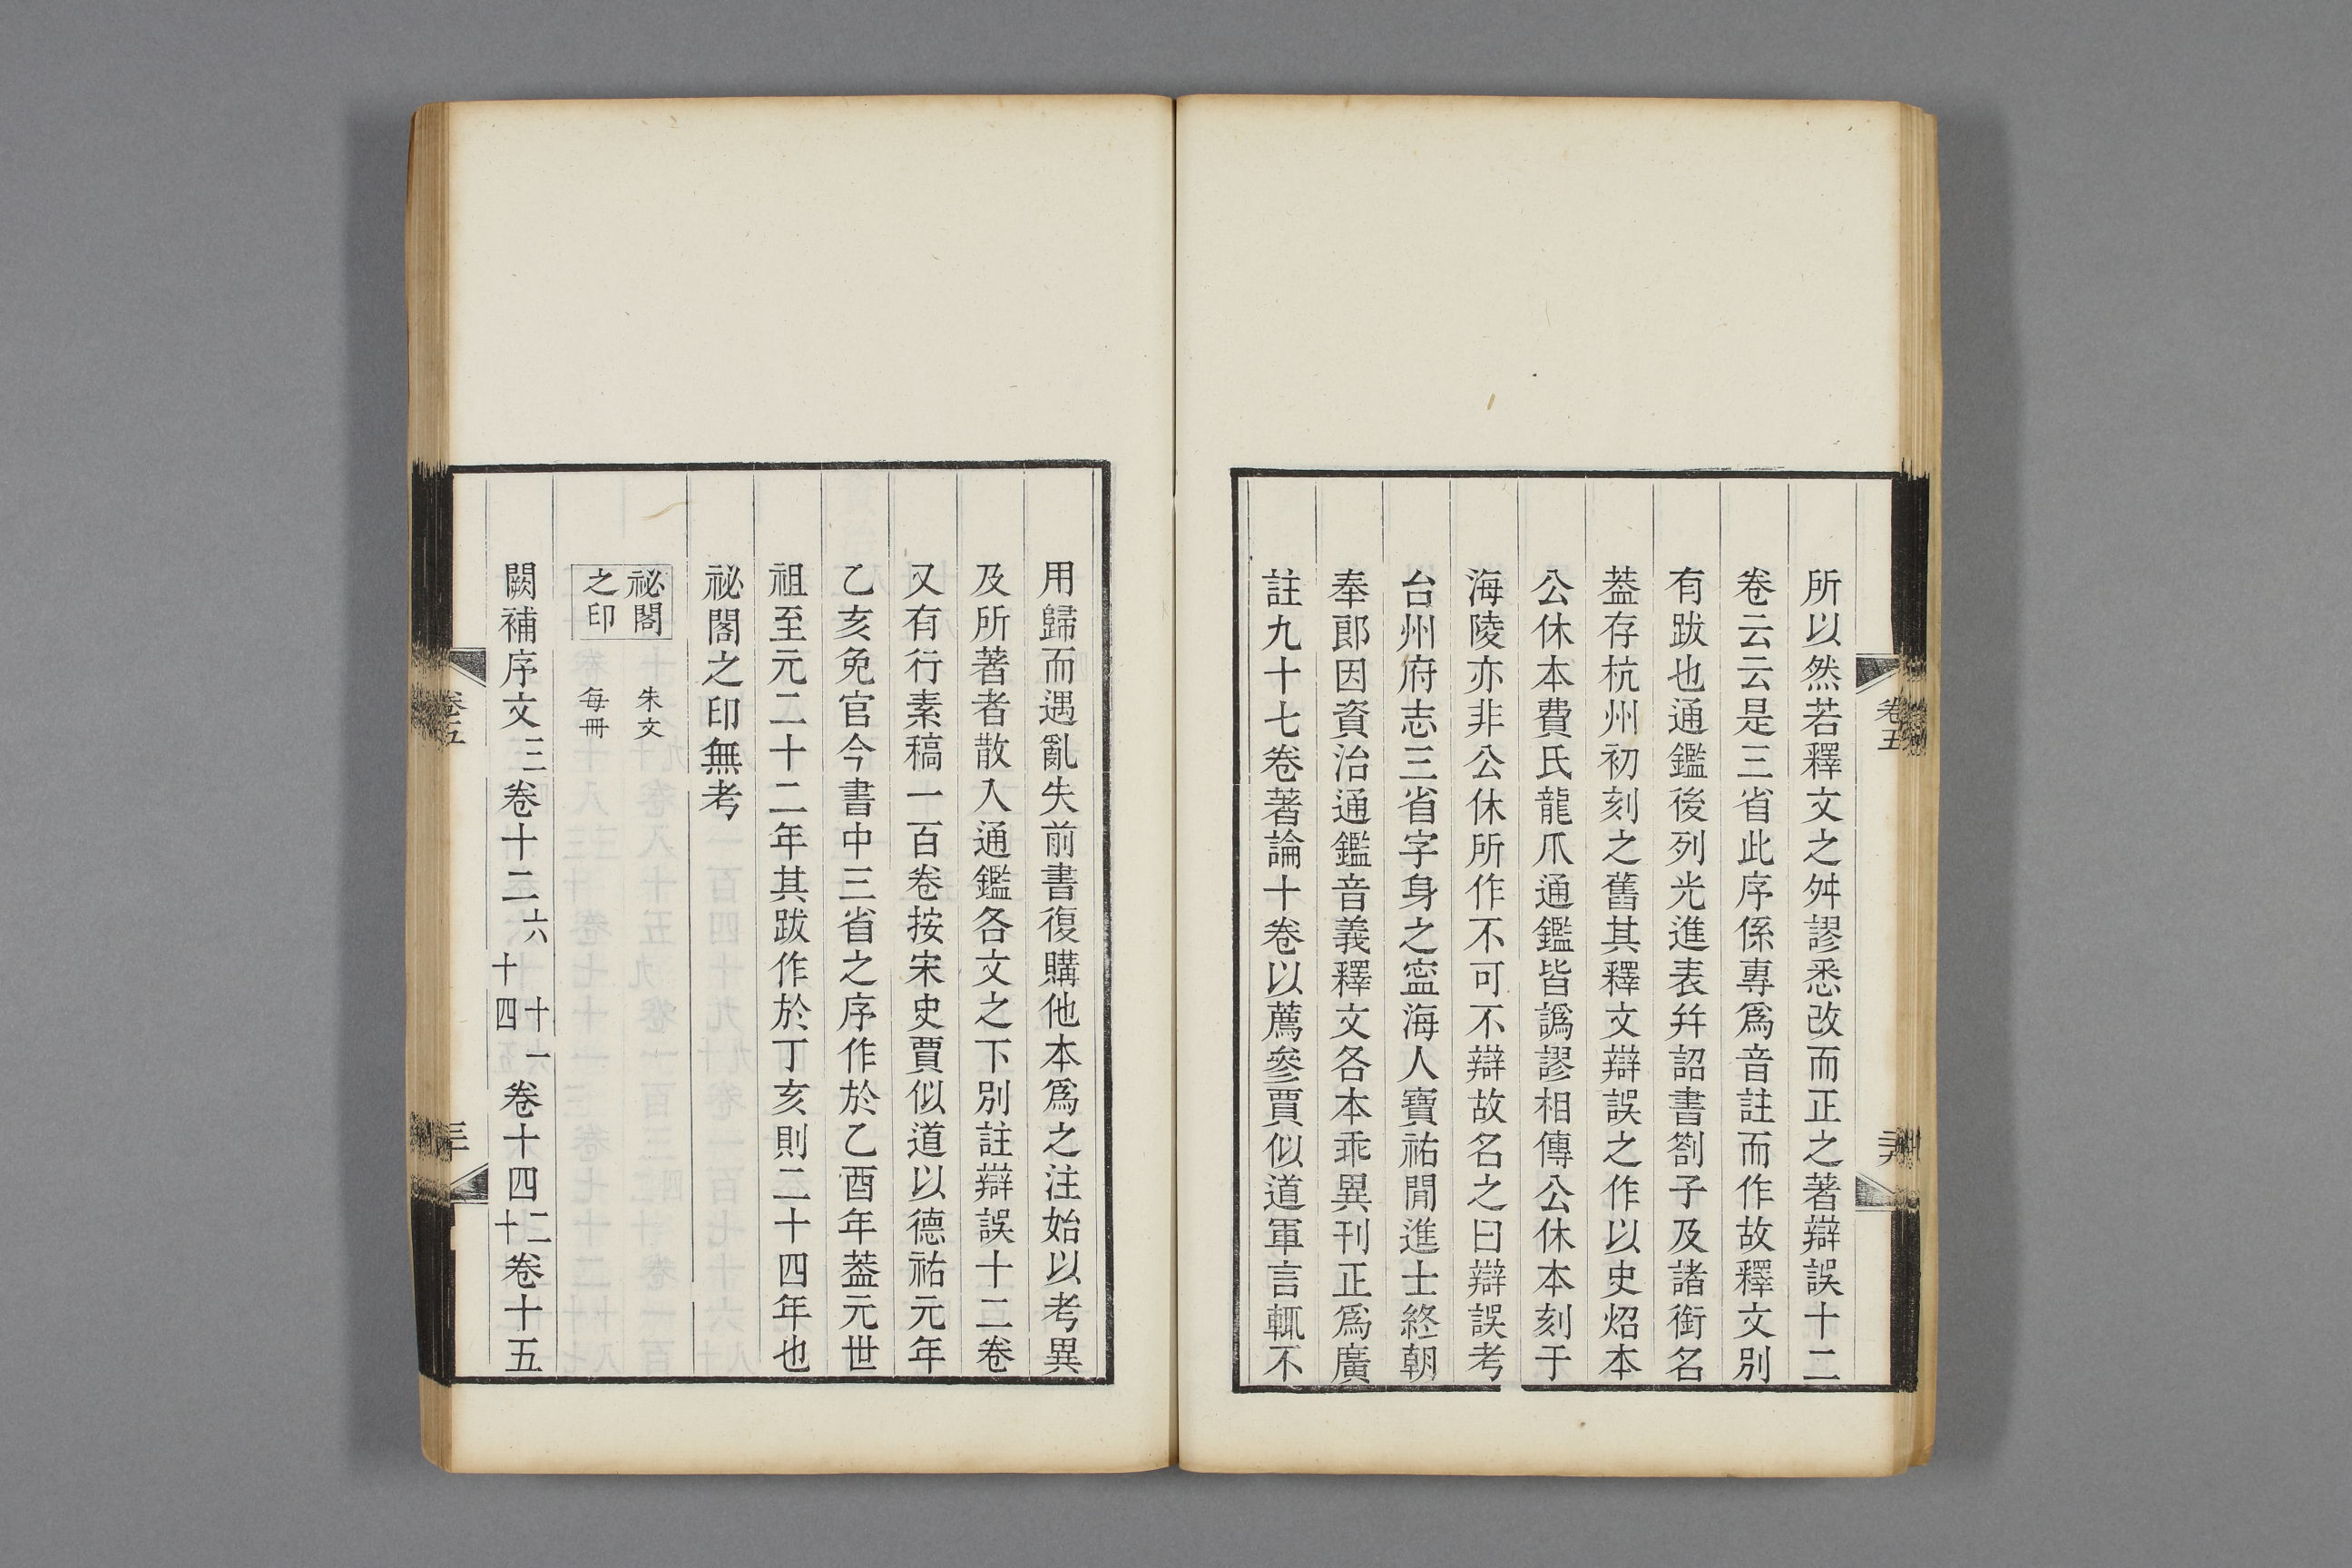 所以然若釋文之舛謬悉改而正之著辯誤十二
卷云云是三省此序係專爲音註而作故釋文別
有跋也通鑑後列光進表幷詔書劄子及諸銜名
葢存杭州初刻之舊其釋文辯誤之作以史炤本
公休本費氏龍爪通鑑皆譌謬相傳公休本刻于
海陵亦非公休所作不可不辯故名之曰辯誤考
台州府志三省字身之寍海人寶祐閒進士終朝
奉郞因資治通鑑音義釋文各本乖異刊正爲廣
註九十七卷著論十卷以薦參賈似道軍言輒不
用歸而遇亂失前書復購他本爲之注始以考異
及所著者散入通鑑各文之下別註辯誤十二卷
又有行素稿一百卷按宋史賈似道以德祐元年
乙亥免官今書中三省之序作於乙酉年葢元世
祖至元二十二年其跋作於丁亥則二十四年也
祕閣之印無考
祕閣之印 朱文每冊
闕補序文二三卷十二六十一十四卷十四二十卷十五
卷五